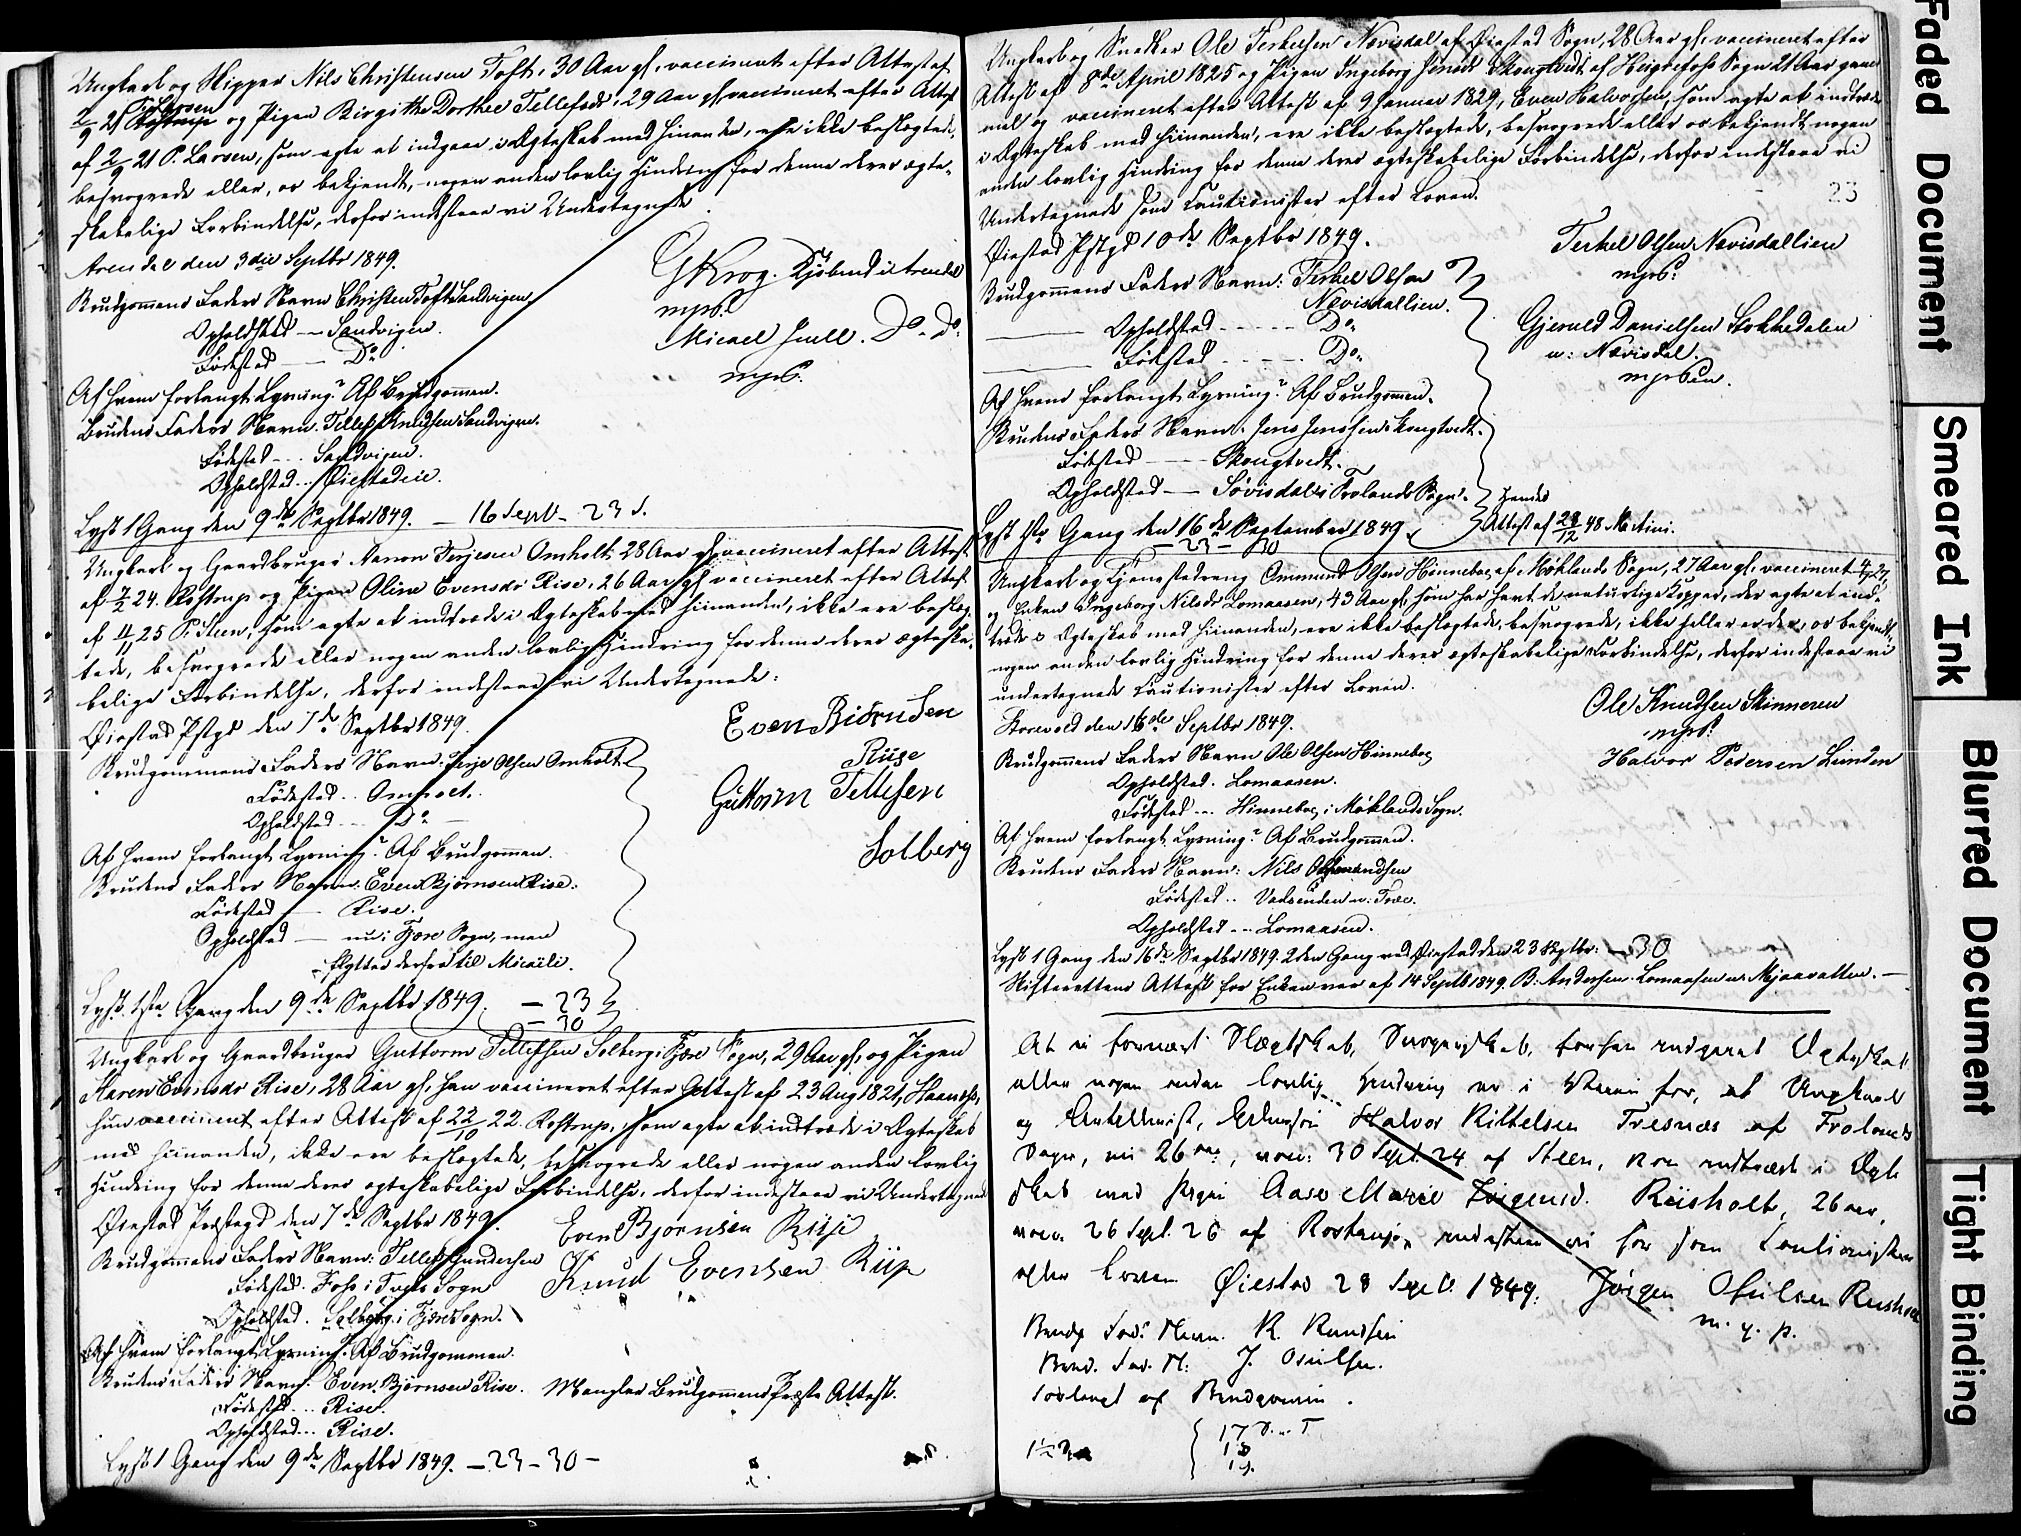 Ungkarl og Skipper Nils Christensen Toft, 30 Aar gl. vaccineret efter Attest af
2/9 21 Larsen og Pigen Birgithe Dorthee Tellefsdr, 29 Aar gl vaccineret efter Attest
af 2/9 21 P. Larsen, som agte at indgaae i Ægteskab med hinanden, ere ikke beslægtede,
besvogrede eller, os bekjendt, nogen anden lovlig Hindring for denne deres ægte-
skabelige Forbindelse, derfor indestaae vi Undertegnede
Arendal den 3die Septbr 1849.
G Krog. Kjøbmd i Arendal
mps.
Micael Juell. Do. Do.
mps.
Brudgommens Faders Navn Christen Toft Sandvigen
Opholdsted — Sandvigen.
Fødested — Do
Af hvem forlangt Lysning? Af Brudgommen.
Brudens Faders Navn. Tellef Knudsen Sandvigen.
Fødested --- Sandvigen.
Opholdsted ... Øiestadeie.
Lyst 1 Gang den 9de Septbr 1849. — 16 Sept — 23 d.
Ungkarl og Gaardbruger Aanon Terjesen Omholt 28 Aar gl vaccineret efter Attest
af 7/2 24. Rostrup og Pigen Oline Evensdr Rise, 26 Aar gl vaccineret efter Attest
af 4/11 25 P. Steen, som agte at indtræde i Ægteskab med hinanden, ikke ere beslæg-
tede, besvogrede eller nogen anden lovlig Hindring for denne deres ægteska-
belige Forbindelse, derfor indestaae vi Undertegnede:
Øiestad Pstgd den 7de Septbr 1849.
Even Biørnsen
Riise
Guttorm Tellefsen
Solberg
Brudgommens Faders Navn: Terje Olsen Omholt
Fødested .. Omholt.
Opholdsted --- Do —
Af hvem forlangt Lysning? Af Brudgommen.
Brudens Faders Navn: Even Bjørnsen Rise.
Fødested — Rise.
Opholdsted — nu i Fjære Sogn, men
flytter derfra til Micaeli.
Lyst 1ste Gang den 9de Septbr 1849. — 23
— 30
Ungkarl og Gaardbruger Guttorm Tellefsen Solberg i Fjære Sogn, 29 Aar gl, og Pigen
Karen Evensdr Rise, 28 Aar gl, han vaccineret efter Attest af 23 Aug 1821,
hun vaccineret efter Attest af 22/10 22. Rostrup, som agte at indtræde i Ægteskab
med hinanden, ikke ere beslægtede, besvogrede eller nogen anden lovlig
Hindring for denne deres ægteskabelige Forbindelse, derfor indestaae vi Undertegnede
Øiestad Præstegd den 7de Septbr 1849.
Even Bjørnsen Riise
Knud Evensen Riise
Brudgommens Faders Navn: Tellef Gundersen
Fødested. Foss i Sogn
Opholdsted. Solberg i Fjære Sogn.
Af hvem forlangt Lysning. Af Brudgommen.
Brudens Faders Navn. Even Bjørnsen Rise. Mangler Brudgommens Præste Attest.
Fødested ... Rise.
Opholdsted ... Rise.
Lyst 1 Gang den 9de Septbr 1849. — 23 — 30 —
Ungkarl og Snedker Ole Terkelsen Nævisdal af Øiestad Sogn, 28 Aar gl. vaccineret efter
Attest af 8de April 1825 og Pigen Ingeborg Jensdr Skougtvedt af Sogn 21 Aar gam-
mel og vaccineret efter Attest af 9 Januar 1829, Even Halvorsen, som agte at indtræde
i Ægteskab med hinanden, ere ikke beslægtede, besvogrede eller os bekjendt nogen
anden lovlig Hindring for denne deres ægteskabelige Forbindelse, derfor indestaae vi
Undertegnede som Cautionister efter Loven.
23
Øiestad Pstgd 10de Septbr 1849.
Terkel Olsen Nævisdallien
mps:
Gjeruld Danielsen Stokkedalen
u: Nævisdal.
mpsen.
Brudgommens Faders Navn: Terkel Olsen
Nævisdallien.
Opholdsted ----- Do.
Fødested ---- Do.
Af hvem forlangt Lysning? Af Brudgommen.
Brudens Faders Navn. Jens Jenssen Skougtvedt.
Fødested — Skougtvedt.
Opholdsted — Søvisdal i Frolands Sogn.
Hendes
Attest af 28/12 48 Martini.
Lyst 1ste Gang den 16de September 1849.
— 23 — 30
Ungkarl og Tjenestedreng Ommund Olsen Hinneboe af Møklands Sogn, 27 Aar gl. vaccineret
og Enken Ingeborg Nilsdr Lomaasen, 43 Aar gl, som har havt de naturlige Kopper, der agte at ind-
træde i Ægteskab med hinanden, ere ikke beslægtede, besvogrede, ikke heller er der, os bekjendt,
nogen anden lovlig Hindring for denne deres ægteskabelige Forbindelse, derfor indestaae vi
undertegnede Cautionister efter Loven.
den 16de Septbr 1849.
Ole Knudsen Skinneren
mps.
Halvor Pedersen Lunden
Brudgommens Faders Navn Ole Olsen Hinneboe
Opholdsted. Lomaasen.
Fødested --- Hinneboe i Møklands Sogn.
Af hvem forlangt Lysning? Af Brudgommen.
Brudens Faders Navn: Nils
Fødested .. Vadsenden u: Træe.
Opholdsted --- Lomaasen.
Lyst 1 Gang den 16de Septbr 1849. 2den Gang ved Øiestad den 23 Septbr. — 30
Skifterettens Attest for Enken var af 14 Septb 1849. B. Andersen. Lomaasen u. Mjaavatten. —
At ei fornært Slægtskab, Svogerskab, forhen indgaaet Ægteskab
eller nogen anden lovlig Hindring er i Veien for, at Ungkarl
og Halvor Kittelsen Tresnæs af Frolands
Sogn, nu 26 aar, vacc. 30 Sept. 24 af Steen, kan indtræde i Ægte-
skab med Pigen Aase Marie Jørgensd. Riisholt, 26 aar,
vacc. 26 Sept. 26 af Rostrup, indestaae vi for som Cautionister
efter Loven Øiestad 28 Sept. 1849.
Jørgen Osulsen Riisholt
m. p. p.
Brudg Fad. Navn. K. Knudsen
Brud. Fad. N: J. Osulsen.
Forlangt af Brudgommen.
Faded Document
Smeared Ink
Blurred Document
Tight Binding